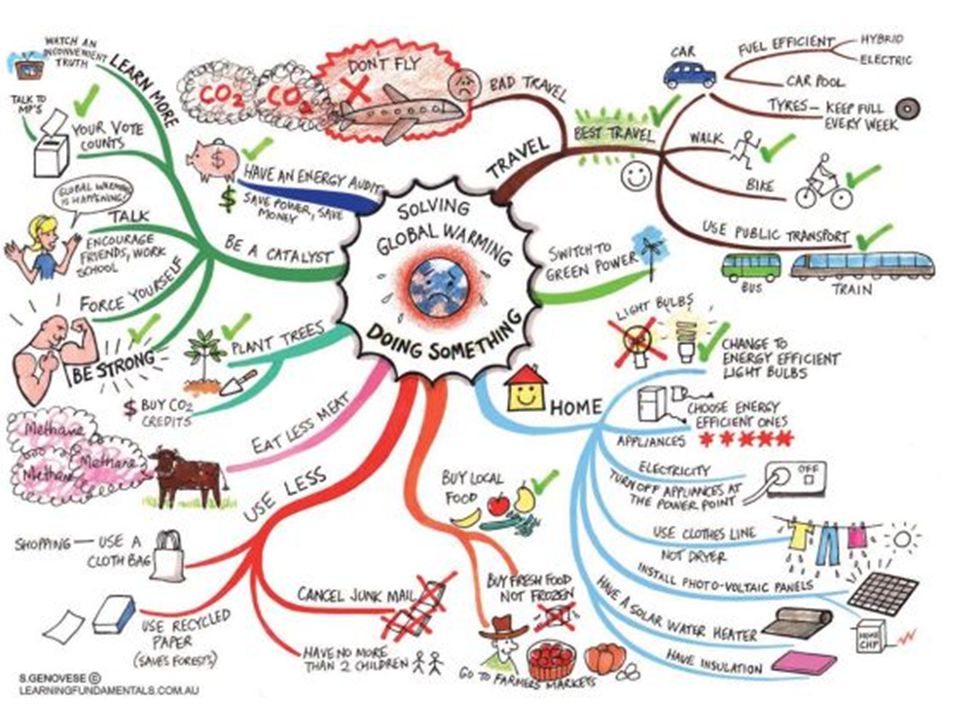 SOLVING
GLOBAL WARMING
DOING SOMETHING
TRAVEL
BAD TRAVEL
DON'T FLY
CO2
CO2
BEST TRAVEL
CAR
FUEL EFFICIENT
HYBRID
ELECTRIC
CAR POOL
TYRES - KEEP FULL
EVERY WEEK
WALK
BIKE
USE PUBLIC TRANSPORT
BUS
TRAIN
SWITCH TO
GREEN POWER
HOME
LIGHT BULBS
CHANGE TO
ENERGY EFFICIENT
LIGHT BULBS
CHOOSE ENERGY
EFFICIENT ONES
APPLIANCES
ELECTRICITY
TURN OFF APPLIANCES AT
THE POWER POINT
OFF
USE CLOTHES LINE
NOT DRYER
INSTALL PHOTO-VOLTAIC PANELS
HAVE A SOLAR WATER HEATER
HOME
CHP
HAVE INSULATION
BUY LOCAL
FOOD
BUY FRESH FOOD
NOT FROZEN
GO TO FARMERS MARKETS
USE LESS
SHOPPING - USE A
CLOTH BAG
USE RECYCLED
PAPER
(SAVES FORESTS)
CANCEL JUNK MAIL
HAVE NO MORE
THAN 2 CHILDREN
EAT LESS MEAT
Methane
Methane
Methane
PLANT TREES
$ BUY CO2
CREDITS
BE A CATALYST
LEARN MORE
WATCH AN
INCONVENIENT
TRUTH
TALK TO
MP'S
YOUR VOTE
COUNTS
GLOBAL WARMING
IS HAPPENING!
TALK
ENCOURAGE
FRIENDS, WORK
SCHOOL
FORCE YOURSELF
BE STRONG
$
HAVE AN ENERGY AUDIT
$ SAVE POWER, SAVE
MONEY
S.GENOVESE ©
LEARNINGFUNDAMENTALS.COM.AU